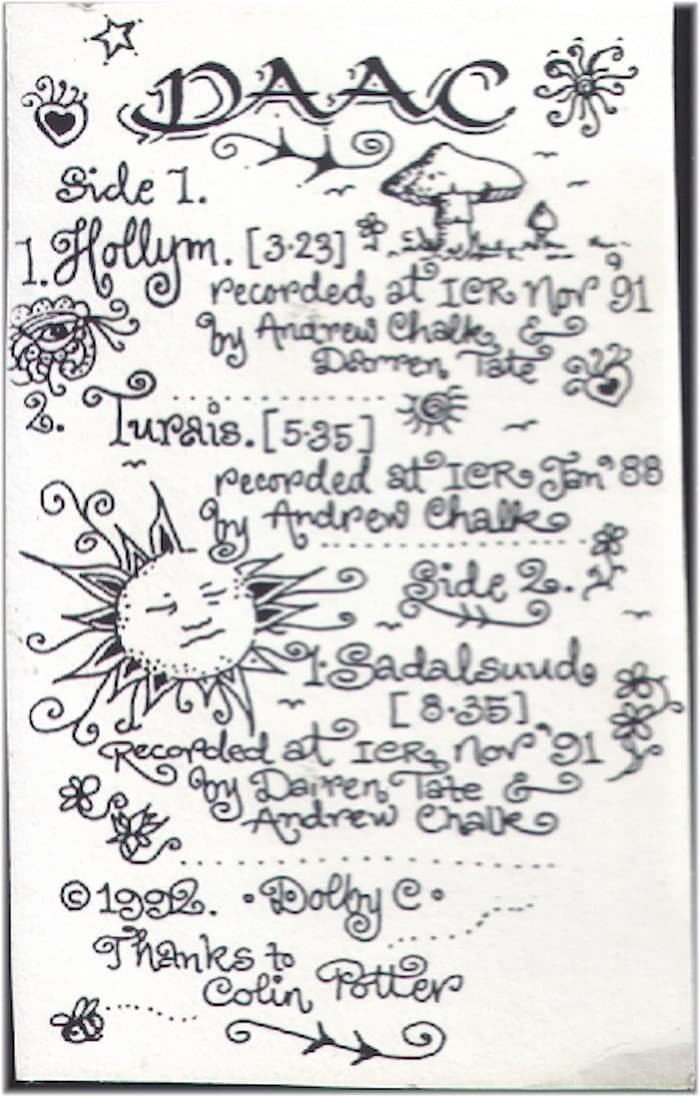 DAAC
Side 1.
1. Hollym. [3·23]
recorded at ICR Nov 91
by Andrew Chalk &
Darren Tate
2. Turais. [5·35]
recorded at ICR Jan' 88
by Andrew Chalk
Side 2.
1·Sadalsuud
[8·35]
Recorded at ICR, Nov '91
by Darren Tate &
Andrew Chalk
©1992. ·Dolby C·
Thanks to
Colin Potter